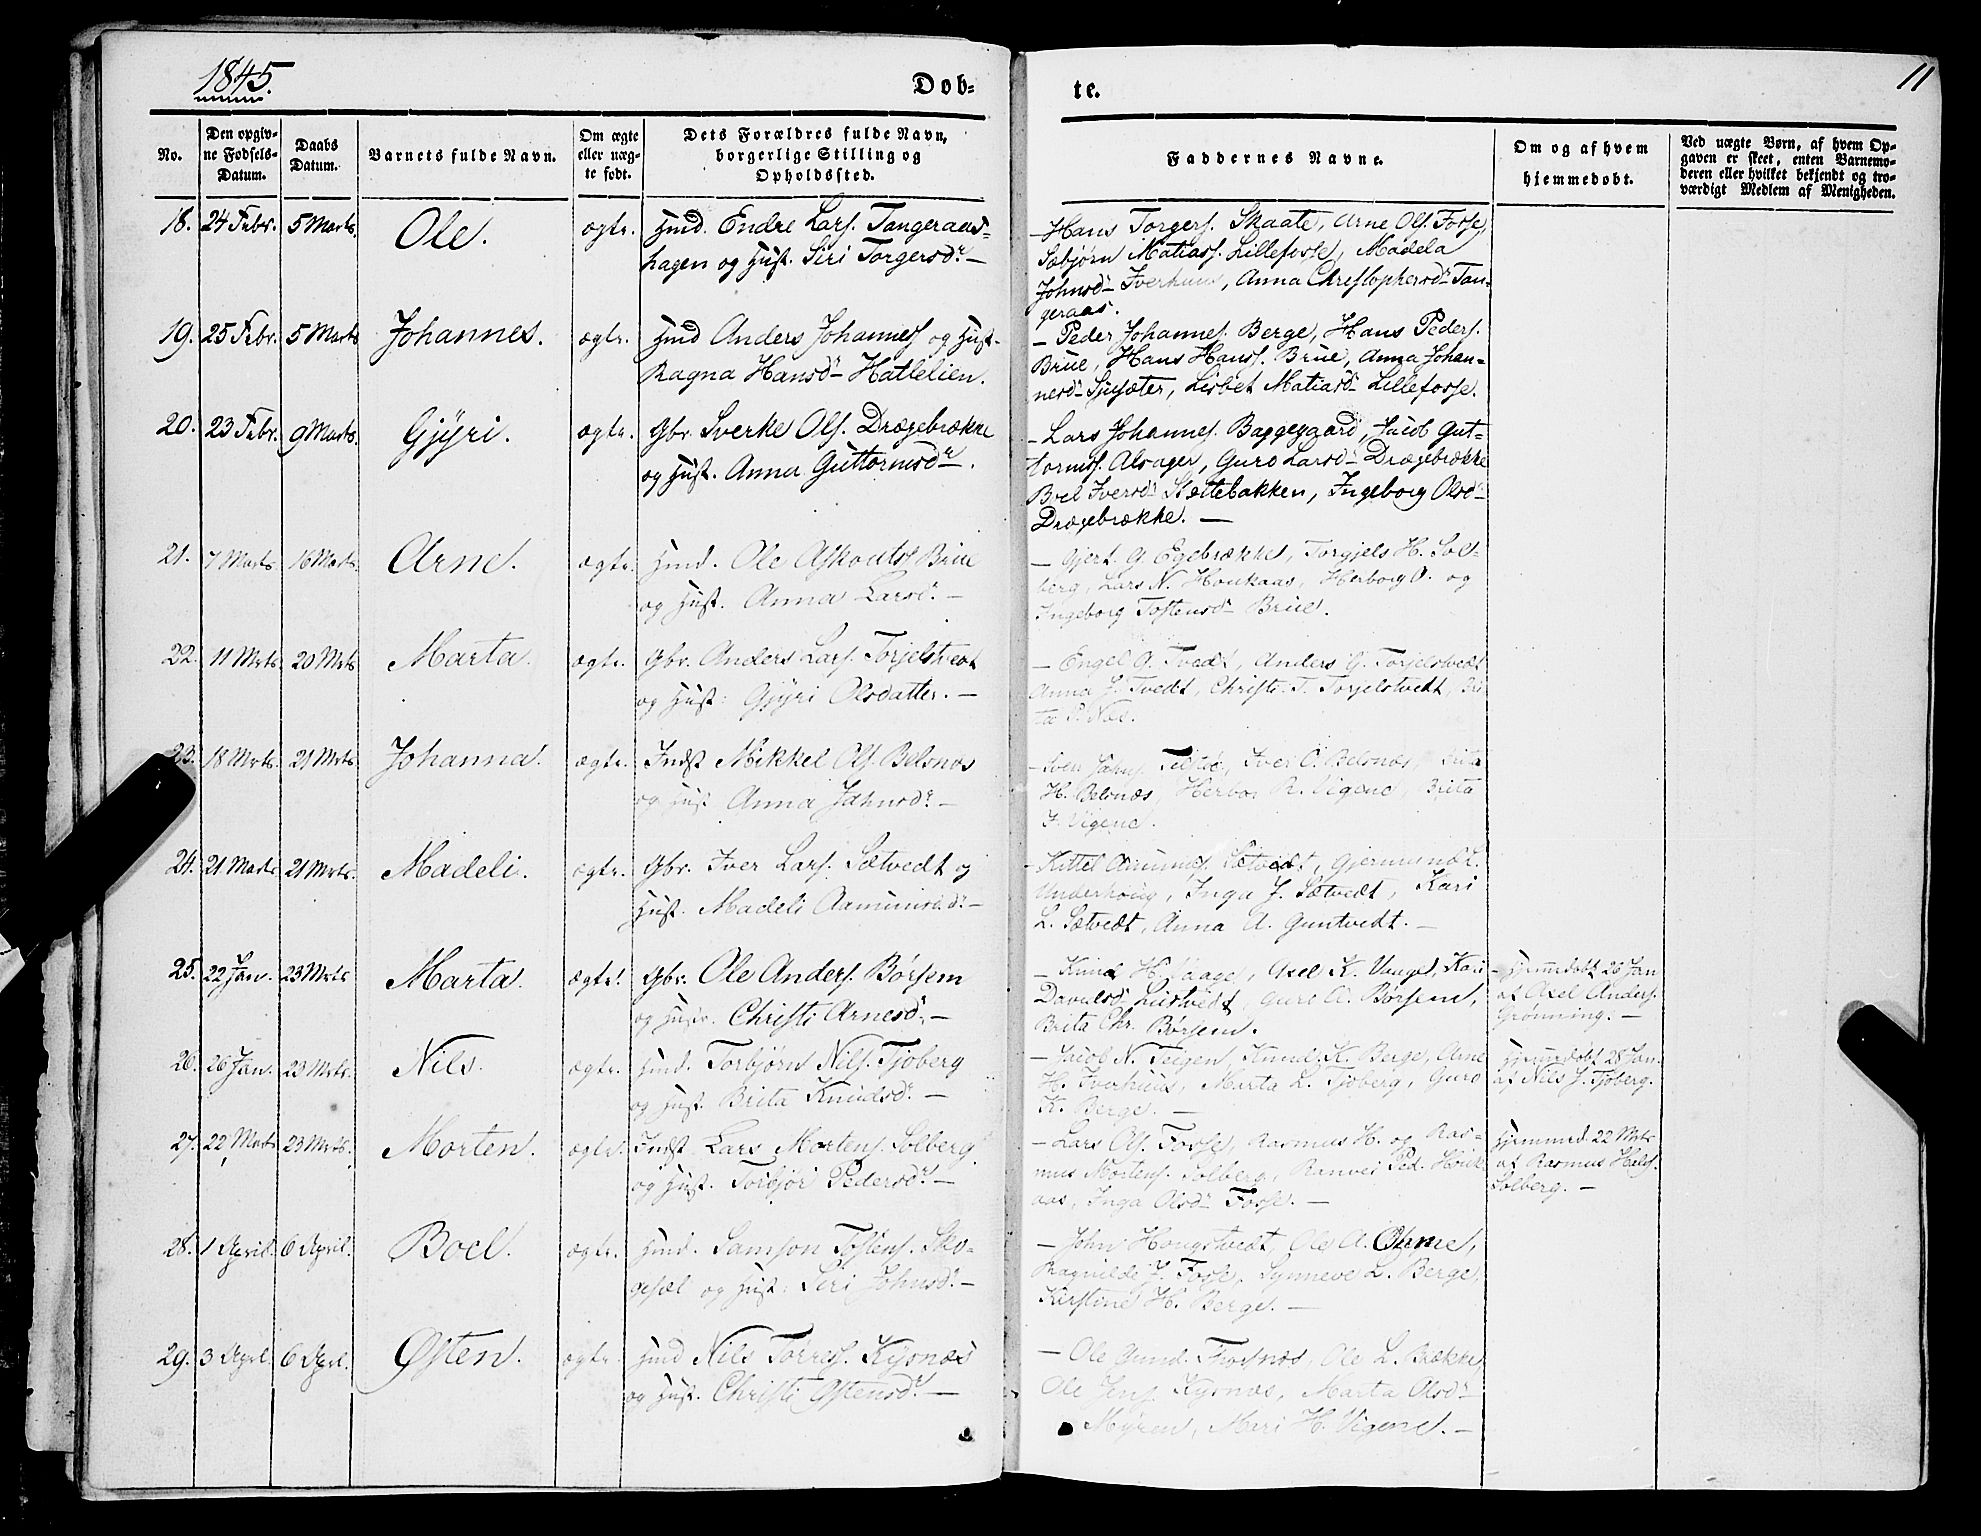 1845.
Døb-
te.
11
No.
Den opgiv-
ne Fødsels-
Datum.
Daabs
Datum.
Barnets fulde Navn.
Om ægte
eller uæg-
te født.
Dets Forældres fulde Navn,
borgerlige Stilling og
Opholdssted.
Faddernes Navne.
Om og af hvem
hjemmedøbt.
Ved uægte Børn, af hvem Op-
gaven er skeet, enten Barnemo-
deren eller hvilket bekjendt og tro-
værdigt Medlem af Menigheden.
18. 24 Febr. 5 Marts Ole. ægte. Hmd. Endre Lars. Tangeraas-
hagen og Hust. Siri Torgersdr. –
– Hans Torgers. Skaate, Arne Ols. Fosse,
Sæbjørn Matias. Lillefosse, Madela
Johnsd. Iverhuus, Anna Christophersdr. Tan-
geraas.
19. 25 Febr. 5 Marts Johannes. ægte. Hmd Anders Johannes. og Hust.
Ragna Hansdr. Hatlelien.
– Peder Johannes. Berge, Hans Peders.
Brüe, Hans Hans. Brüe, Anna Johan-
nesd. Sjusæter, Lisbet Matiasd. Lillefosse.
20. 23 Febr. 9 Marts Gjyri. ægte. Gbr. Sverke Ols. Drægebrække
og Hust. Anna Guttormsdr.
– Lars Johannes. Baggegaard, Jacob Gut-
torms. Alsager, Guro Larsd. Drægebrække
Boel Iversd. Slettebakken, Ingeborg Olsd.
Drægebrække. –
21. 7 Marts 16 Marts Arne. ægte. Hmd. Ole Brüe
og Hust. Anna Larsd. –
– Gjert G. Egebrække, Torgjels H. Sol-
berg, Lars N. Houkaas, Herborg O. og
Ingeborg Tostensd. Brüe.
22. 11 Mrts 20 Mrts Marta. ægte. Gbr. Anders Lars. Torjelstvedt
og Hust: Gjyri Olsdatter. –
– Engel O. Tvedt, Anders G. Torjelstvedt
Anna J. Tvedt, Christi T. Torjelstvedt, Bri-
ta P. Noe.
23. 18 Mrts 21 Mrts Johanna. ægte. Indst Mikkel Ols. Belsnæs
og Hust Anna Jahnsdr. –
– Sven Jahns. Iver O. Belsnæs, Brita
H. Belsnæs, R. Vigene, Brita
J. Vigene.
24. 21 Marts 21 Mrts. Madeli. ægte. Gbr. Iver Lars. Sætvedt og
Hust. Madeli Aamundsdr. –
– Kittel Sætvedt, Gjermund L.
Underhoug, Inga J. Sætvedt, Kari
L. Sætvedt, Anna A. Guntvedt. –
25. 22 Jan. 23 Mrts Marta. ægte. Gbr. Ole Anders. Børsem
og Hustr. Christi Arnesd. –
– Knud H. Vaage, Axel K. Kari
Davidsd. Guro A. Børsem,
Brita Chr. Børsem.
– Hjemmedøbt 26 Jan
af Axel Anders.
Grønning. –
26. 26 Jan. 23 Mrts. Nils. ægte. Hmd. Torbjørn Nils. Tjøberg
og Hust. Brita Knudsdr. –
– Jacob N. Teigen, Knud K. Berge, Arne
H. Iverhuus, Marta L. Tjøberg, Guro
K. Berge. –
Hjemmedøbt 28 Jan.
af Nils J. Tjøberg.
27. 22 Marts 23 Mrts. Morten. ægte. Indst Lars Mortens. Solberg
og Hust. Torbjør Pedersdr. –
– Lars Ols. Fosse, Rasmus H. og Ras-
mus Mortens. Solberg, Ranvei Ped. Houk-
aas, Inga Olsd. Fosse. –
Hjemmed. 22 Mrts
af Rasmus
Solberg. –
28. 1 April. 6 April. Boel. ægte. Hmd. Samson Tostens. Sko-
gesæl og Hust: Siri Johnsd. –
– John Hougstvedt, Ole A.
Ragnilde J. Fosse, Synneve L. Berge,
Kirstine H. Berge. –
29. 3 Aprl. 6 Aprl. Østen. ægte. Hmd Nils Torres. Kysnæs
og Hust. Christi Østensdr. –
– Ole Gund. Fosnæs, Ole L. Brække
Ole Jens. Kysnæs, Marta Olsdr
Myren, Mari H. Vigene. –